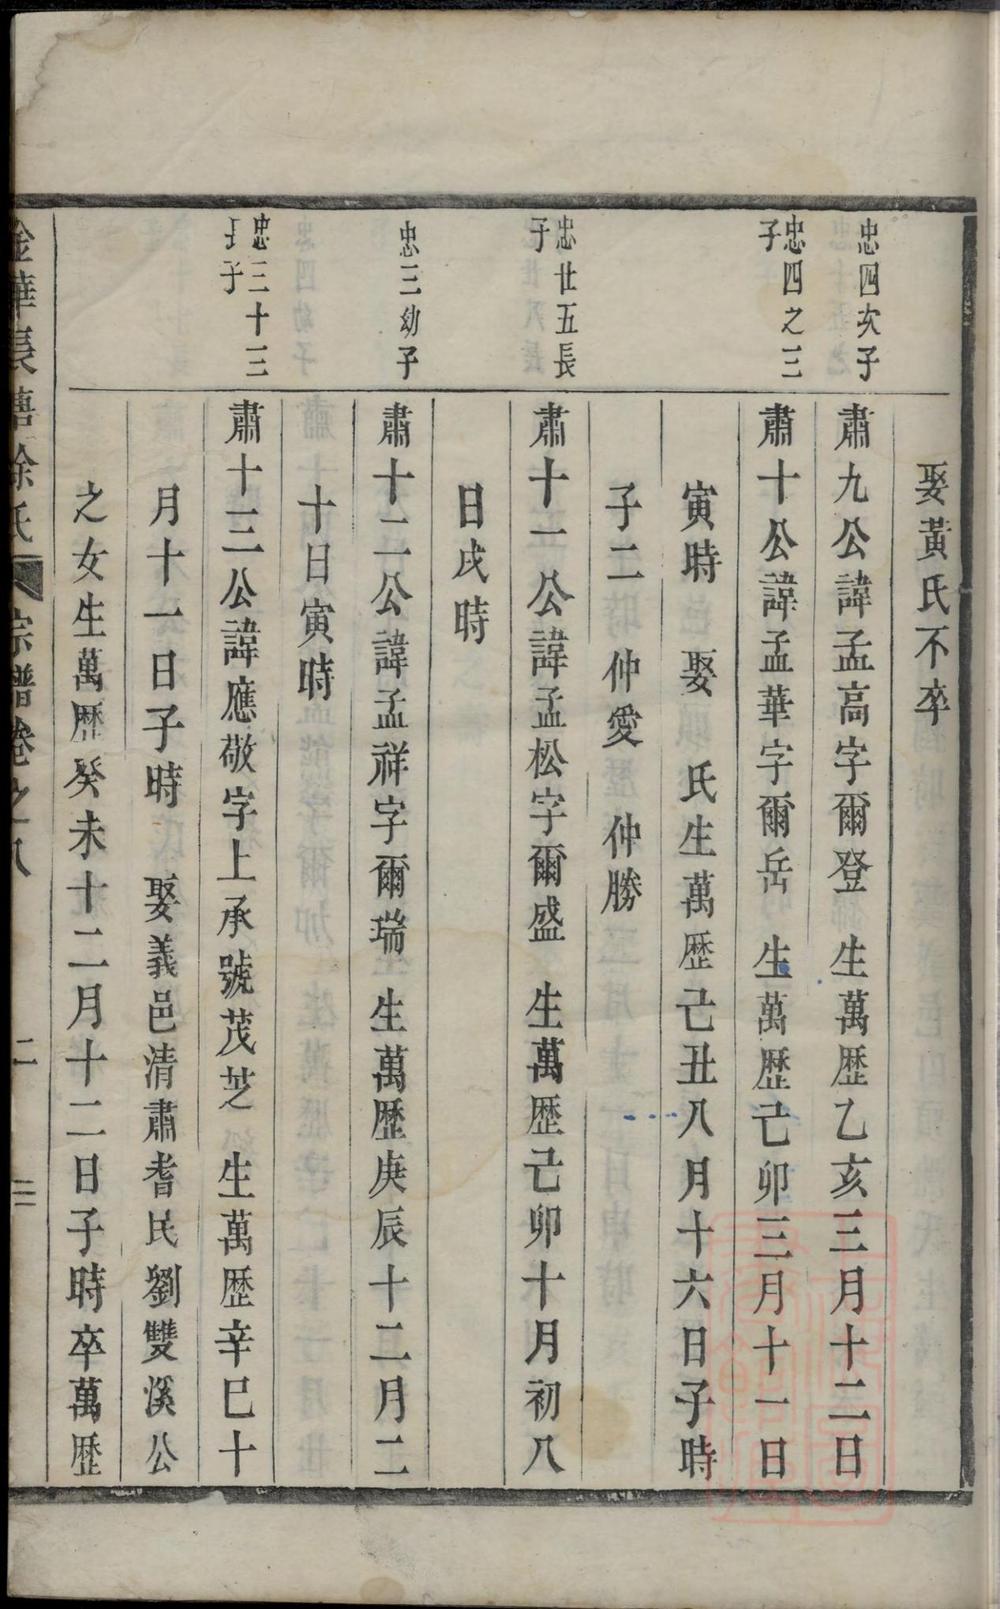 娶黃氏不卒
忠四次子
肅九公諱孟高字爾登 生萬歷乙亥三月十二日
忠四之三子
肅十公諱孟華字爾岳 生萬歷己卯三月十一日
寅時 娶 氏生萬歷己丑八月十六日子時
子二 仲愛 仲勝
忠廿五長子
肅十一公諱孟松字爾盛 生萬歷己卯十月初八
日戌時
忠三幼子
肅十二公諱孟祥字爾瑞 生萬歷庚辰十二月二
十日寅時
忠三十三長子
肅十三公諱應敬字上承號茂芝 生萬歷辛巳十
月十一日子時 娶義邑清肅耆民劉雙溪公
之女生萬歷癸未十二月十二日子時卒萬歷
金華長塘徐氏宗譜卷之八 二 三